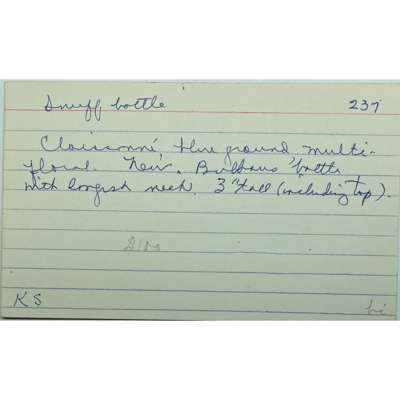 Snuff bottle 237
Cloisonné, blue ground multi-
floral. New. Bulbous bottle
with longish neck. 3" tall (including top).
KS